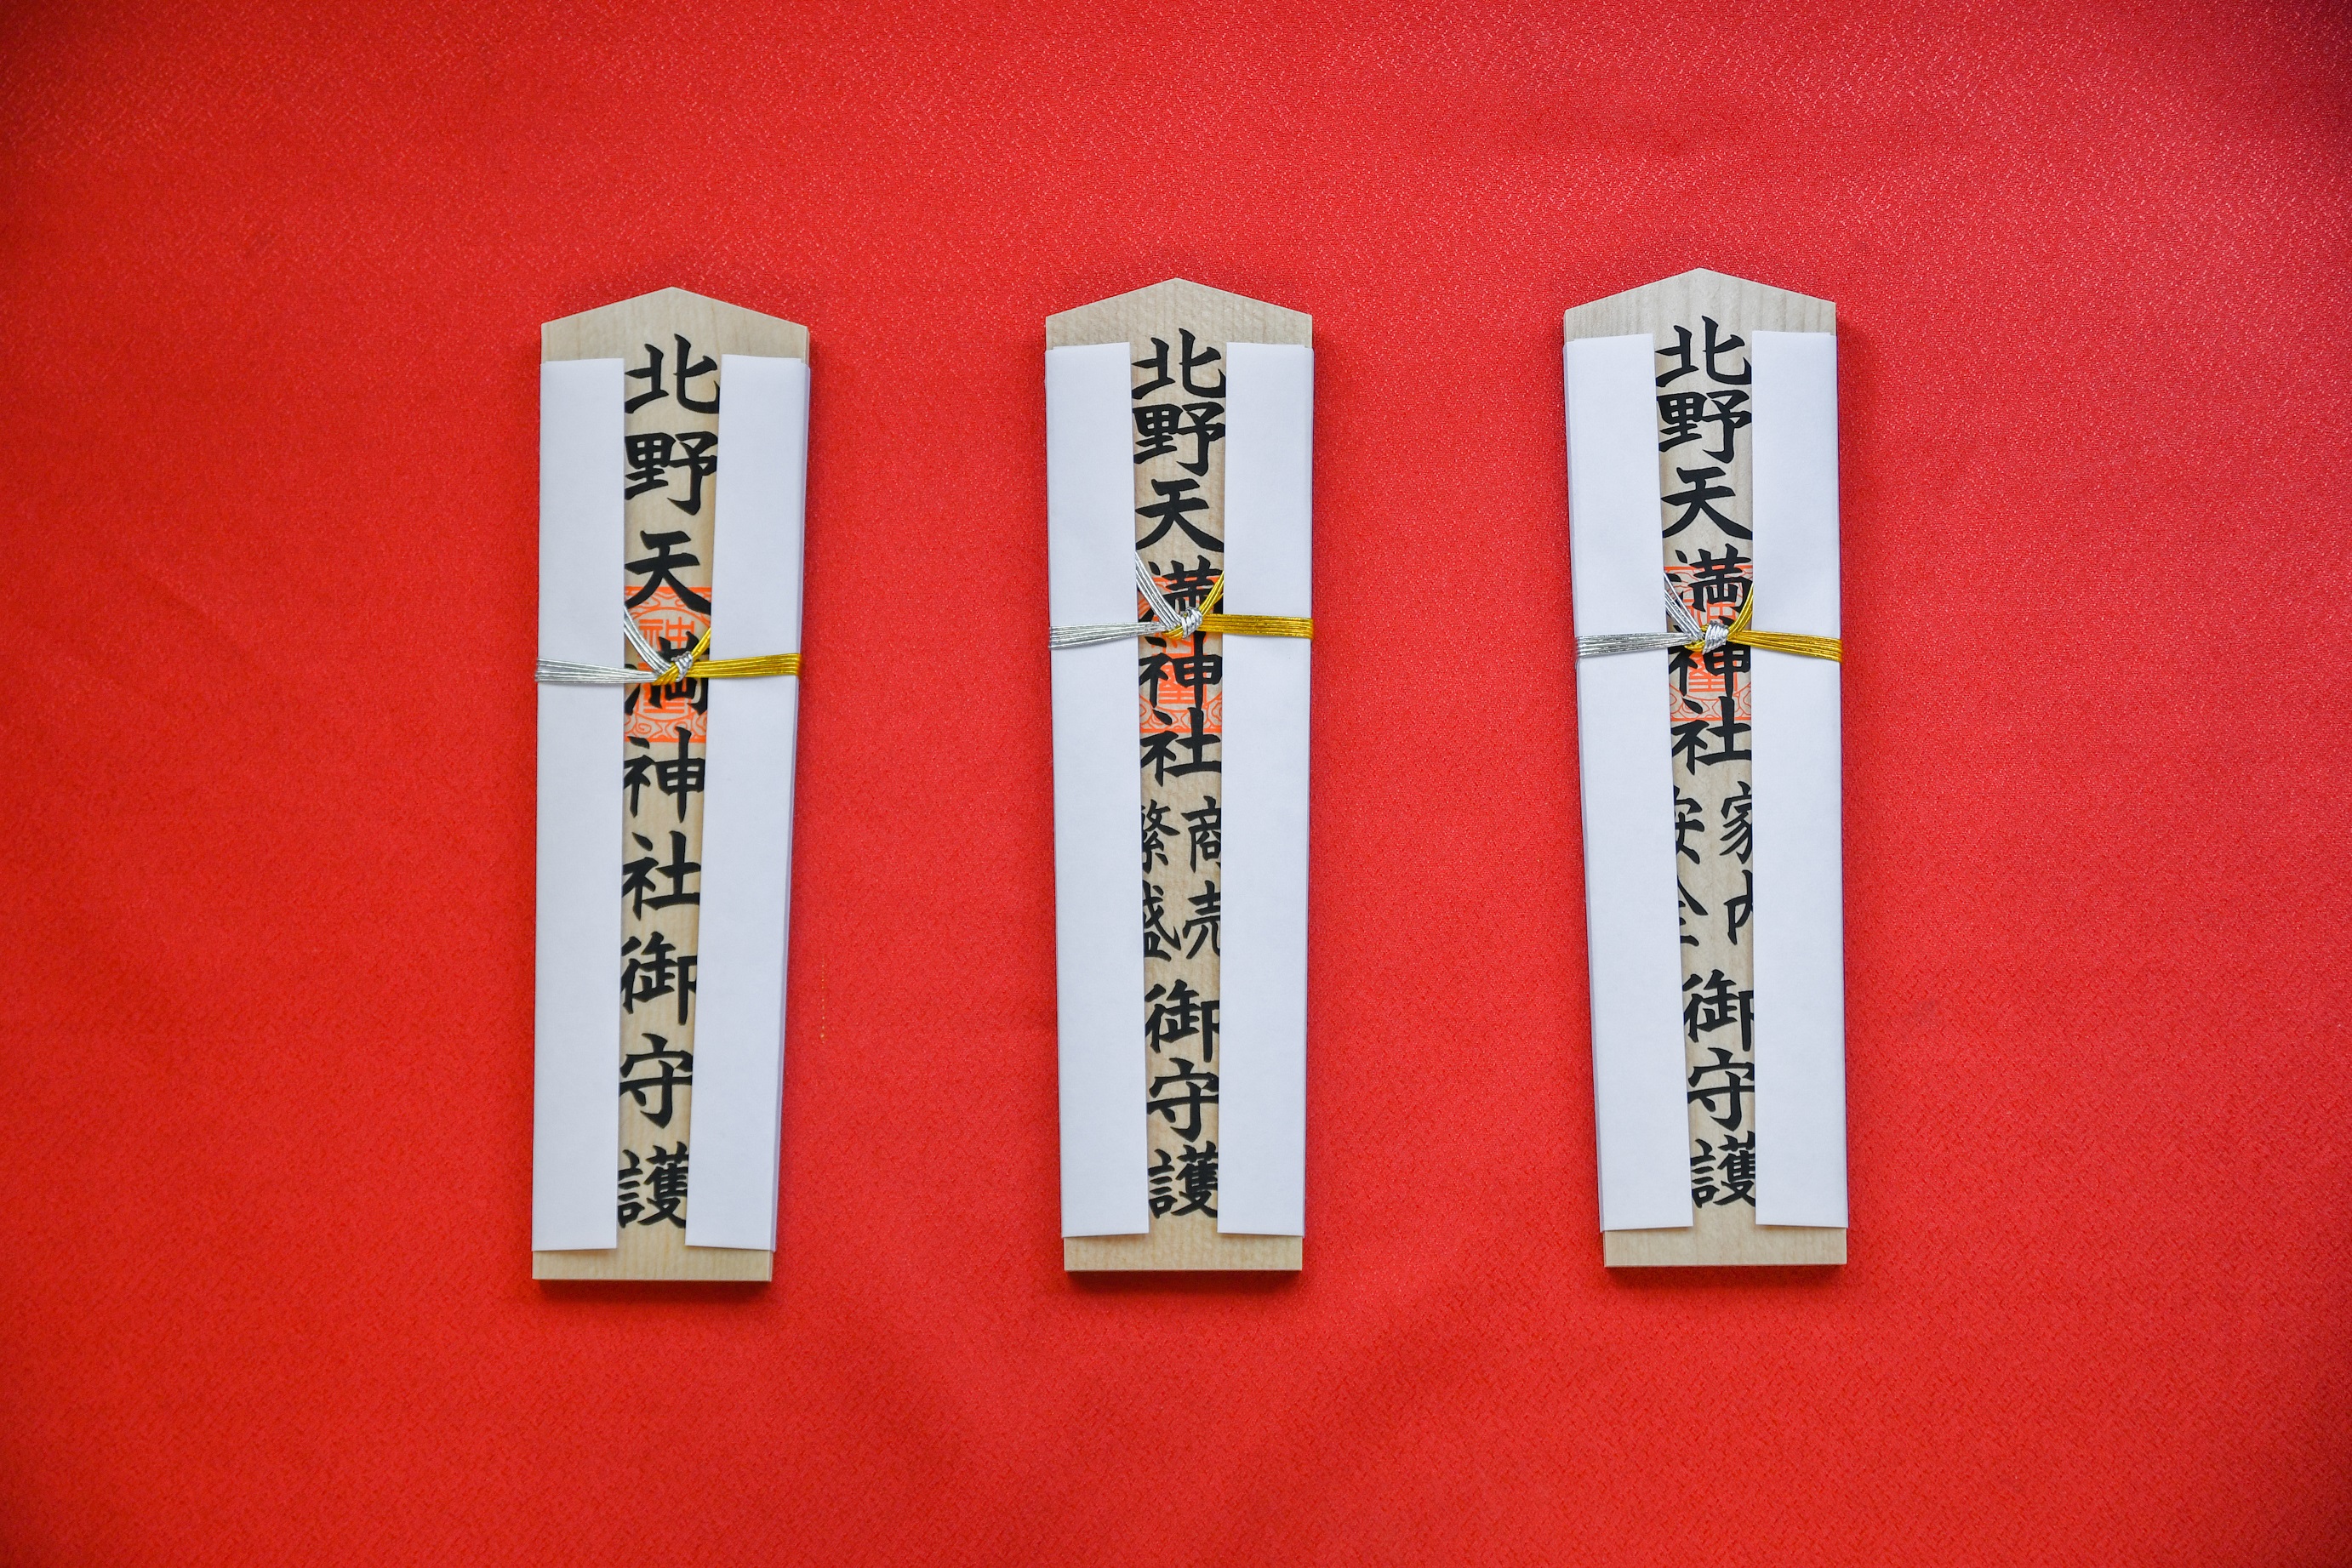 北野天満神社御守護
北野天満神社
商売
繁盛
御守護
北野天満神社
家内
安全
御守護